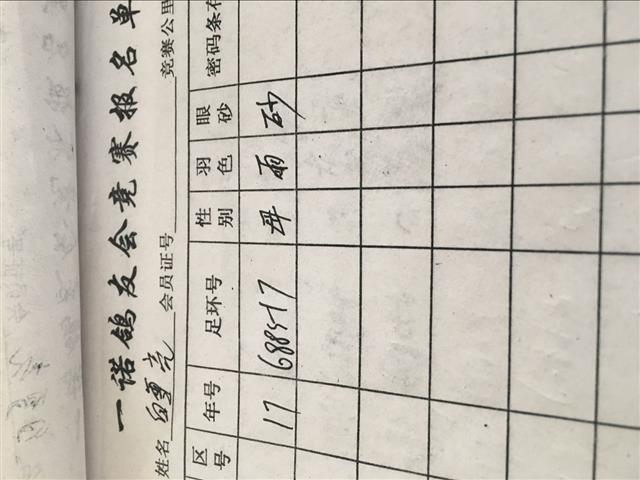 一诺鸽友会竞赛报名单
姓名 白 亮 会员证号 竞赛公里
区号 年号 足环号 性别 羽色 眼砂 密码条
17 688517 母 雨 砂